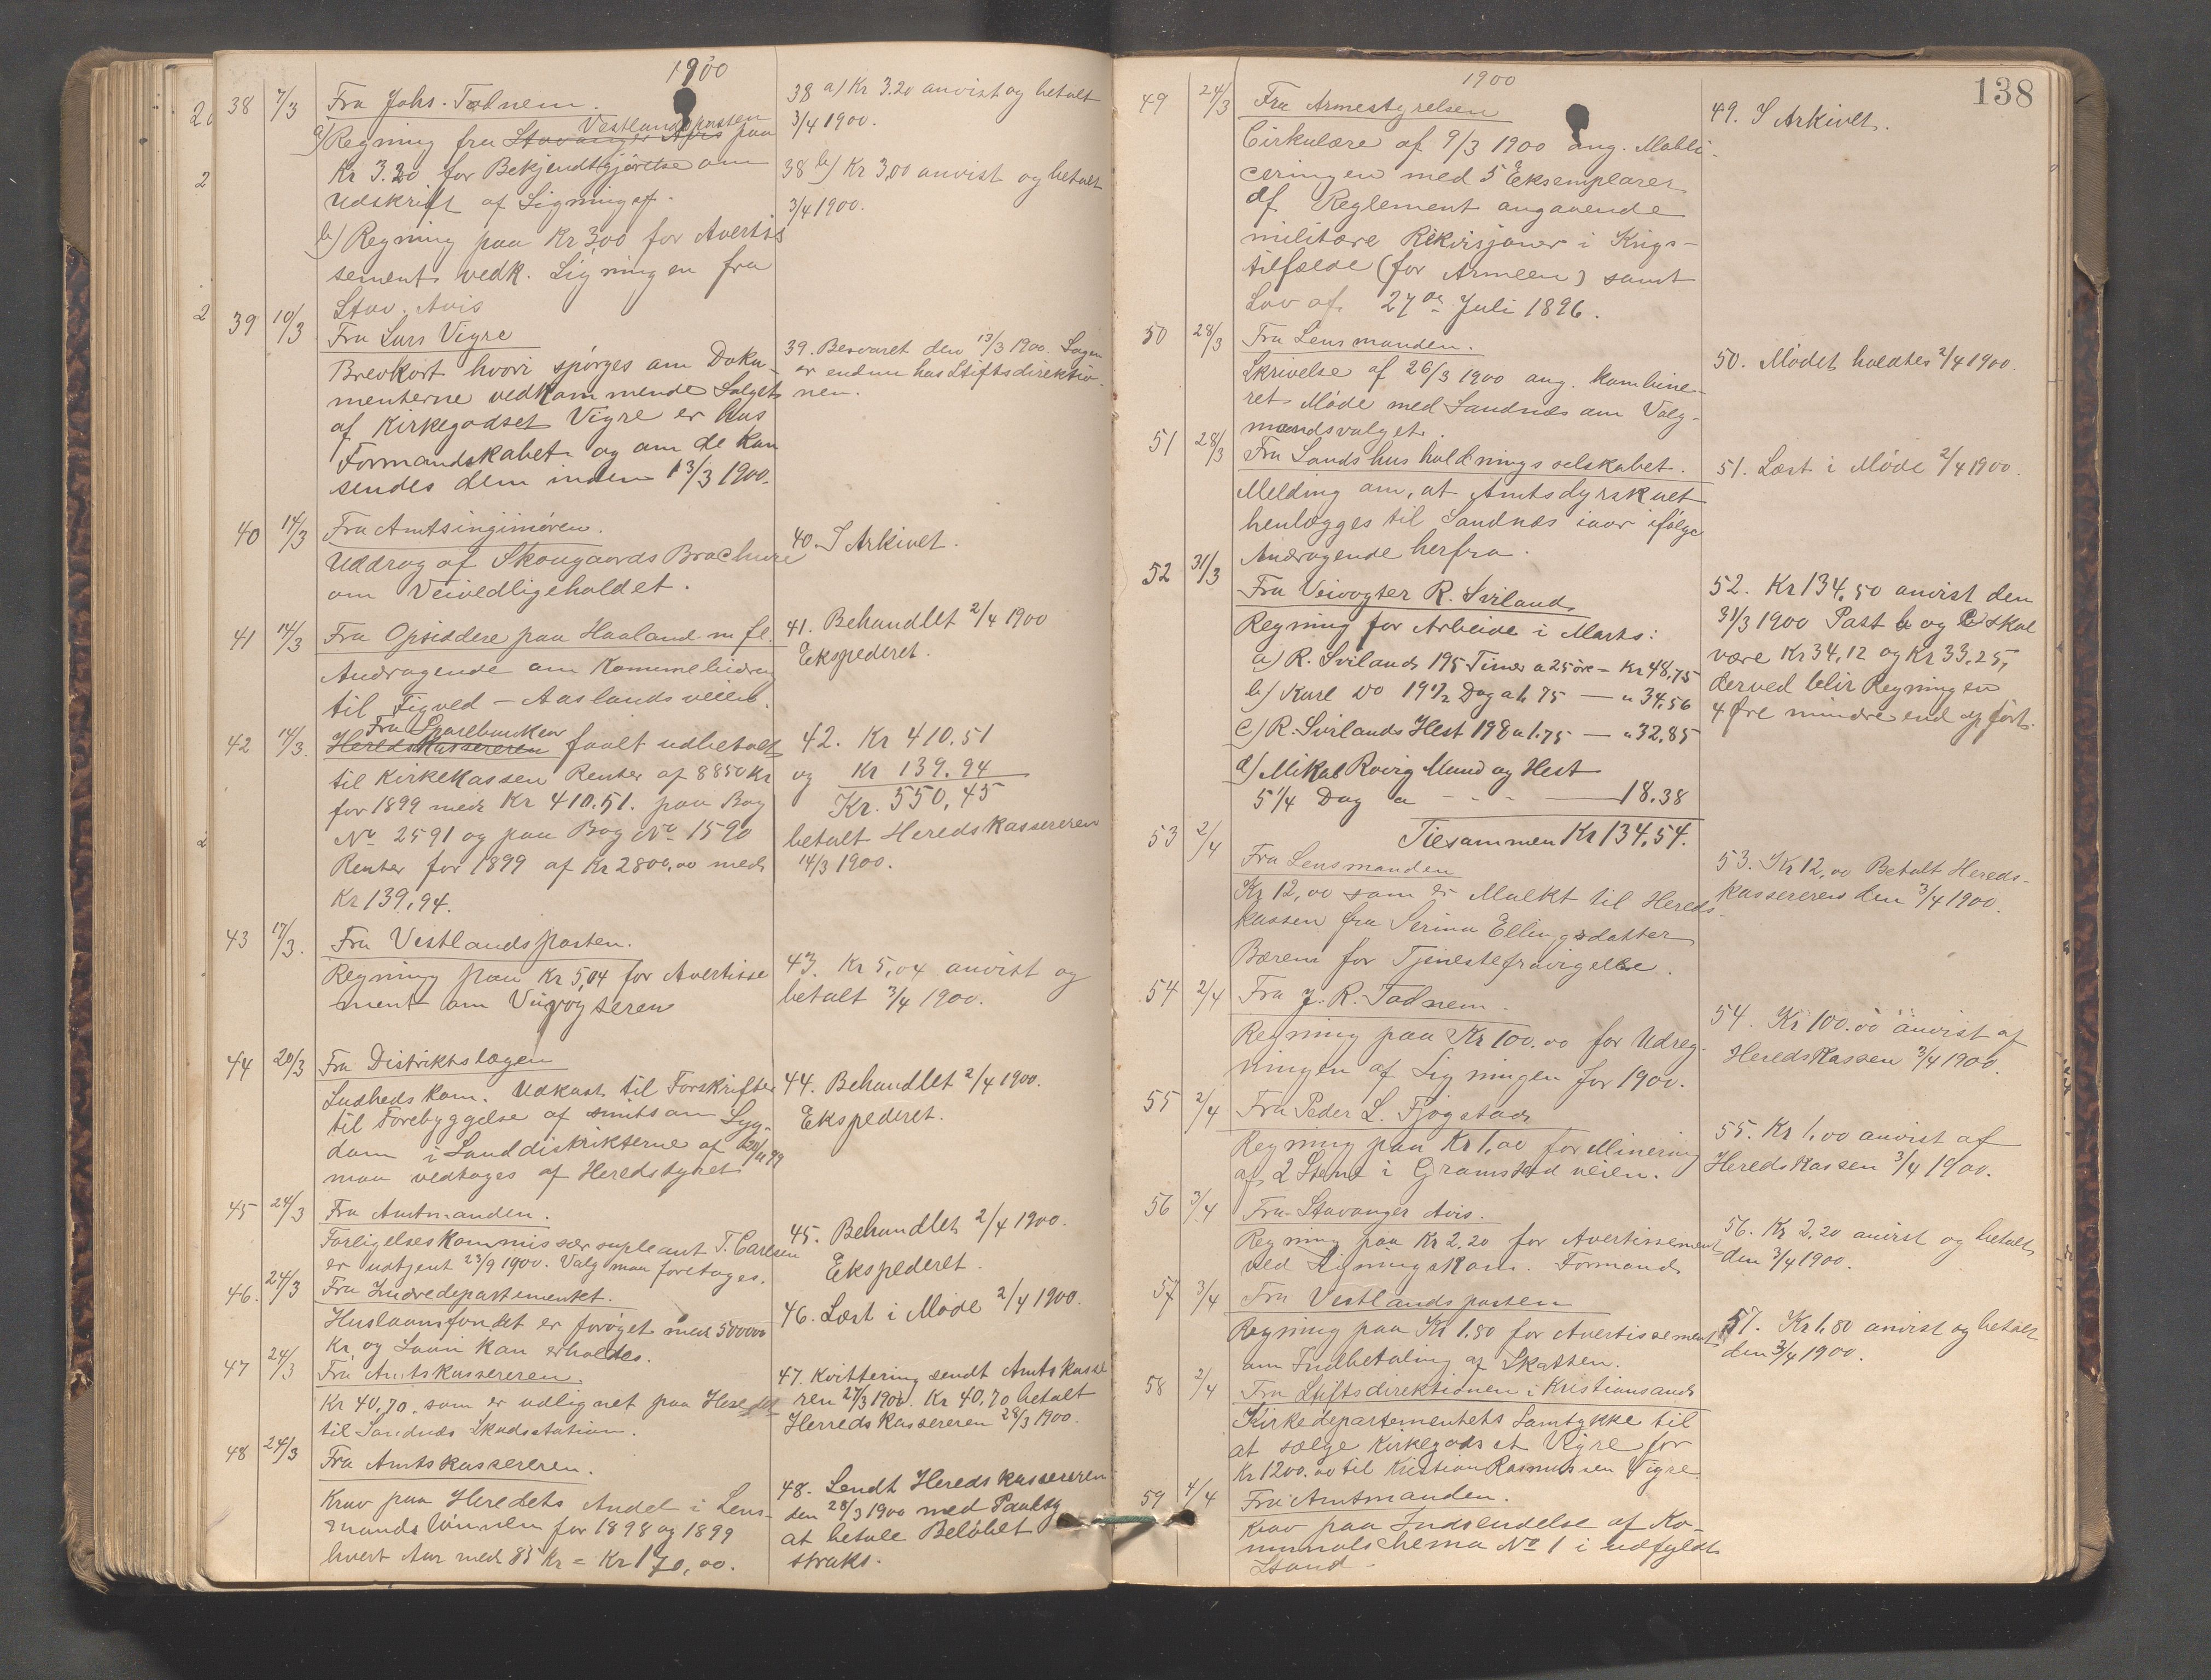 1900
38 7/3 Fra Johs. Tadnem.
a) Regning fra Stavanger Avis Vestlandsposten paa
Kr 3.20 for Bekjendtgjørelse om
Udskrift af Ligningsf.
b) Regning paa Kr 3,00 for Avertis
sement vedk. Ligningen fra
Stav. Avis
38 a) Kr 3.20 anvist og betalt
3/4 1900.
38 b) Kr 3,00 anvist og betalt
3/4 1900.
39 10/3 Fra Lars Vigre
Brevkort hvori spørges om Doku-
menterne vedkommende Salget
af Kirkegodset Vigre er hos
Formandskabet og om de kan
sendes dem inden 13/3 1900.
39. Besvaret den 13/3 1900. Sagen
er endnu hos Stiftsdirektio-
nen.
40 14/3 Fra Amtsingeniøren.
Uddrag af Skougaards Brochure
om Veivedligeholdet.
40. I Arkivet.
41 14/3 Fra Opsiddere paa Haaland m fl.
Andragende om Kommunebidrag
til Figved - Aaslandsveien.
41. Behandlet 2/4 1900
Ekspederet.
42 14/3. Fra Sparebanken
Heredskassereren faalt udbetalt
til Kirkekassen Renter af 8850 Kr
for 1899 med Kr 410.51. paa Bog
No 2591 og paa Bog No 1590
Renter for 1899 af Kr 2800,00 med
Kr 139,94.
42. Kr 410.51
og Kr 139.94
Kr. 550,45
betalt Heredskassereren
14/3 1900.
43 17/3. Fra Vestlandsposten.
Regning paa Kr 5,04 for Avertisse
ment om Veivogteren
43. Kr 5,04 anvist og
betalt 3/4 1900.
44 20/3 Fra Distriktslægen
Sudheds kom. Udkast til Forskrifter
til Forebyggelse af smitsom Syg-
dom i Landdistrikterne af 20/11 99
maa vedtages af Heredstyret
44. Behandlet 2/4 1900.
Ekspederet.
45 24/3 Fra Amtmanden.
Forligelseskommissær supleant T. Carlsen
er udtjent 23/9 1900. Valg maa foretages.
45. Behandlet 2/4 1900.
Ekspederet.
46. 24/3 Fra Indredepartementet.
Huslaansfondet er forøget med 500000
Kr. og Laan kan erholdes.
46. Læst i Møde 2/4 1900.
47 24/3 Fra Amtskassereren.
Kr 40,70. som er udlignet paa Heredet
til Sandnæs Skudsstation.
47. Kvittering sendt Amtskasse
ren 27/3 1900. Kr 40,70 betalt
Herredskassereren 28/3 1900.
48 24/3 Fra Amtskassereren.
Krav paa Heredets Andel i Lens-
mandslønnen for 1898 og 1899
hvert Aar med 85 Kr = Kr 170,00.
48. Sendt Heredskassereren
den 28/3 1900 med Paalæg
at betale Beløbet
straks.
138
1900
49 24/3 Fra Armestyrelsen
Cirkulære af 9/3 1900 ang. Mobli-
ceringen med 5 Eksemplarer
af Reglement angaaende
militære Rekvisjoner i Krigs-
tilfælde (for Armeen) samt
Lov af 27de Juli 1896.
49. I Arkivet.
50 28/3 Fra Lensmanden.
Skrivelse af 26/3 1900 ang. kombine-
ret Møde med Sandnæs om Valg-
mandsvalget.
50. Mødet holdtes 2/4 1900.
51 28/3 Fra Landshusholdningsselskabet.
Melding om, at Amtsdyrskuet
henlægges til Sandnæs iaar ifølge
Andragende herfra.
51. Læst i Møde 2/4 1900.
52 31/3 Fra Veivogter R. Sviland
Regning for Arbeide i Marts:
a) R. Sviland 195 Timer a 25 øre - Kr 48,75
b) Karl Do 19 1/2 Dag a 1,75 — " 34,56
c) R. Svilands Hest 198 a 1.75 — " 32,85
d) Mikal Rovig Mand og Hest
5 1/4 Dag a - - - — 18.38
Tilsammen Kr 134,54.
52. Kr 134,50 anvist den
31/3 1900 Post b og c skal
være Kr 34,12 og Kr 33,25,
derved blir Regningen
4 Øre mindre end opført.
53 2/4 Fra Lensmanden
Kr 12,00 som er Mulkt til Hereds-
kassen fra Serina Ellingsdatter
Bærem for Tjenestefravigelse.
53. Kr 12,00 Betalt Hereds-
kassereren den 3/4 1900.
54 2/4 Fra J. R. Tadnem
Regning paa Kr 100.00 for Udreg-
ningen af Ligningen for 1900.
54. Kr 100.00 anvist af
Heredskassen 3/4 1900.
55 2/4 Fra Peder L. Fjogstad
Regning paa Kr 1,00 for Minering
af 2 Stene i Gramstad veien.
55. Kr 1,00 anvist af
Heredskassen 3/4 1900.
56 3/4 Fra Stavanger Avis.
Regning paa Kr 2,20 for Avertissement
ved Ligningskom. Formand
56. Kr 2,20 anvist og betalt
den 3/4 1900.
57 3/4 Fra Vestlandsposten
Regning paa Kr 1,80 for Avertissement
om Indbetaling af Skatten.
57. Kr 1,80 anvist og betalt
den 3/4 1900.
58 2/4 Fra Stiftsdirektionen i Kristiansand
Kirkedepartementets Samtykke til
at sælge Kirkegodset Vigre for
Kr 1200.00 til Kristian Rasmussen Vigre.
59 4/4 Fra Amtmanden.
Krav paa Indsendelse af Ko-
munalschema No 1 i udfyldt
Stand.